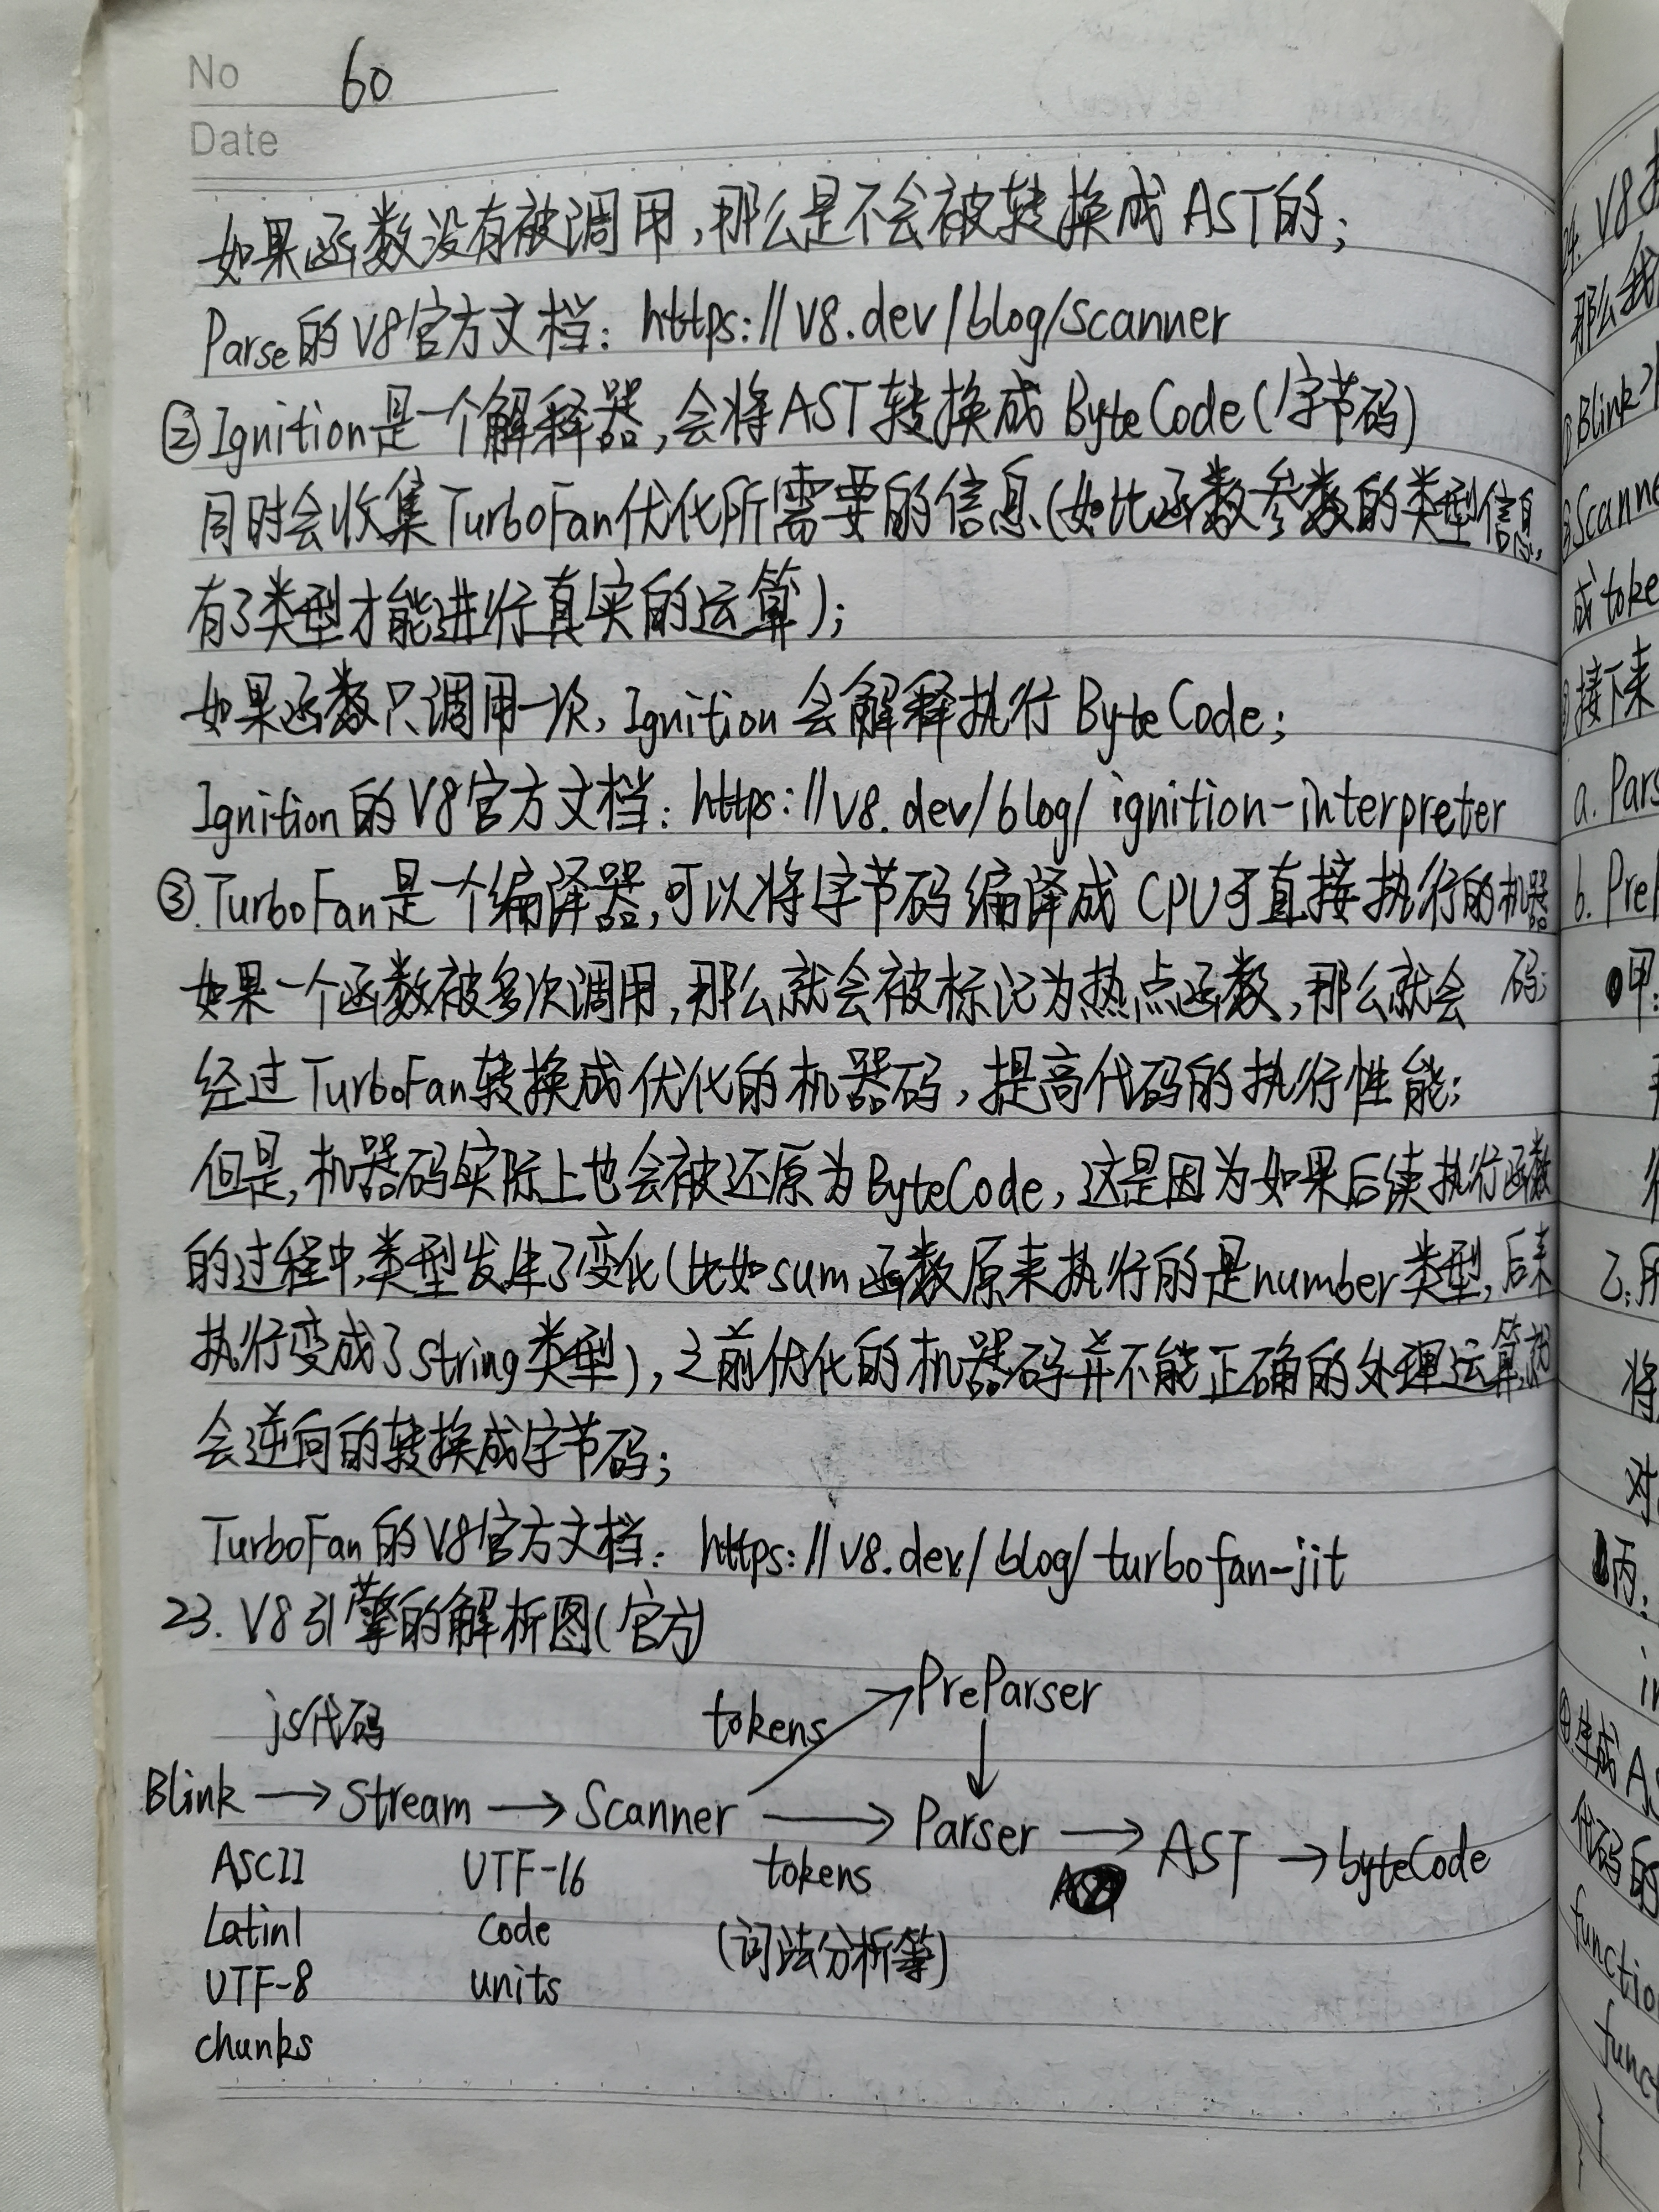 No 60
Date
如果函数没有被调用,那么是不会被转换成AST的;
Parse的V8官方文档: https://v8.dev/blog/scanner
②Ignition是一个解释器,会将AST转换成ByteCode(字节码)
同时会收集TurboFan优化所需要的信息(如比函数参数的类型信息,
有了类型才能进行真实的运算);
如果函数只调用一次, Ignition会解释执行ByteCode;
Ignition的V8官方文档: https://v8.dev/blog/ignition-interpreter
③.TurboFan是一个编译器,可以将字节码编译成CPU可直接执行的机器码;
如果一个函数被多次调用,那么就会被标记为热点函数,那么就会
经过TurboFan转换成优化的机器码,提高代码的执行性能;
但是,机器码实际上也会被还原为ByteCode,这是因为如果后续执行函数
的过程中,类型发生了变化(比如sum函数原来执行的是number类型,后来
执行变成了string类型),之前优化的机器码并不能正确的处理运算,就
会逆向的转换成字节码;
TurboFan的V8官方文档: https://v8.dev/blog/turbofan-jit
23. V8引擎的解析图(官方)
js代码 tokens PreParser
Blink → Stream → Scanner → Parser → AST → byteCode
ASCII UTF-16 tokens
Latin1 code (词法分析等)
UTF-8 units
chunks
24. V8
那么我
Blink
Scanne
成toke
接下来
a. Pars
b. PreP
甲:
乙:
将
对
丙:
④生成AS
代码的
functio
funct